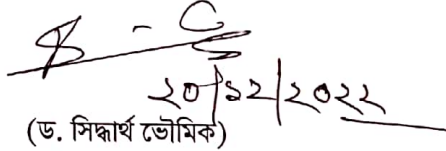 ২০/১২/২০২২
(ড. সিদ্ধার্থ ভৌমিক)